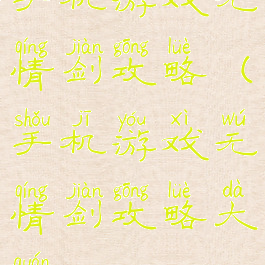 手机游戏无
qíng jiàn gōng lüè
情剑攻略（
shǒu jī yóu xì wú
手机游戏无
qíng jiàn gōng lüè dà
情剑攻略大